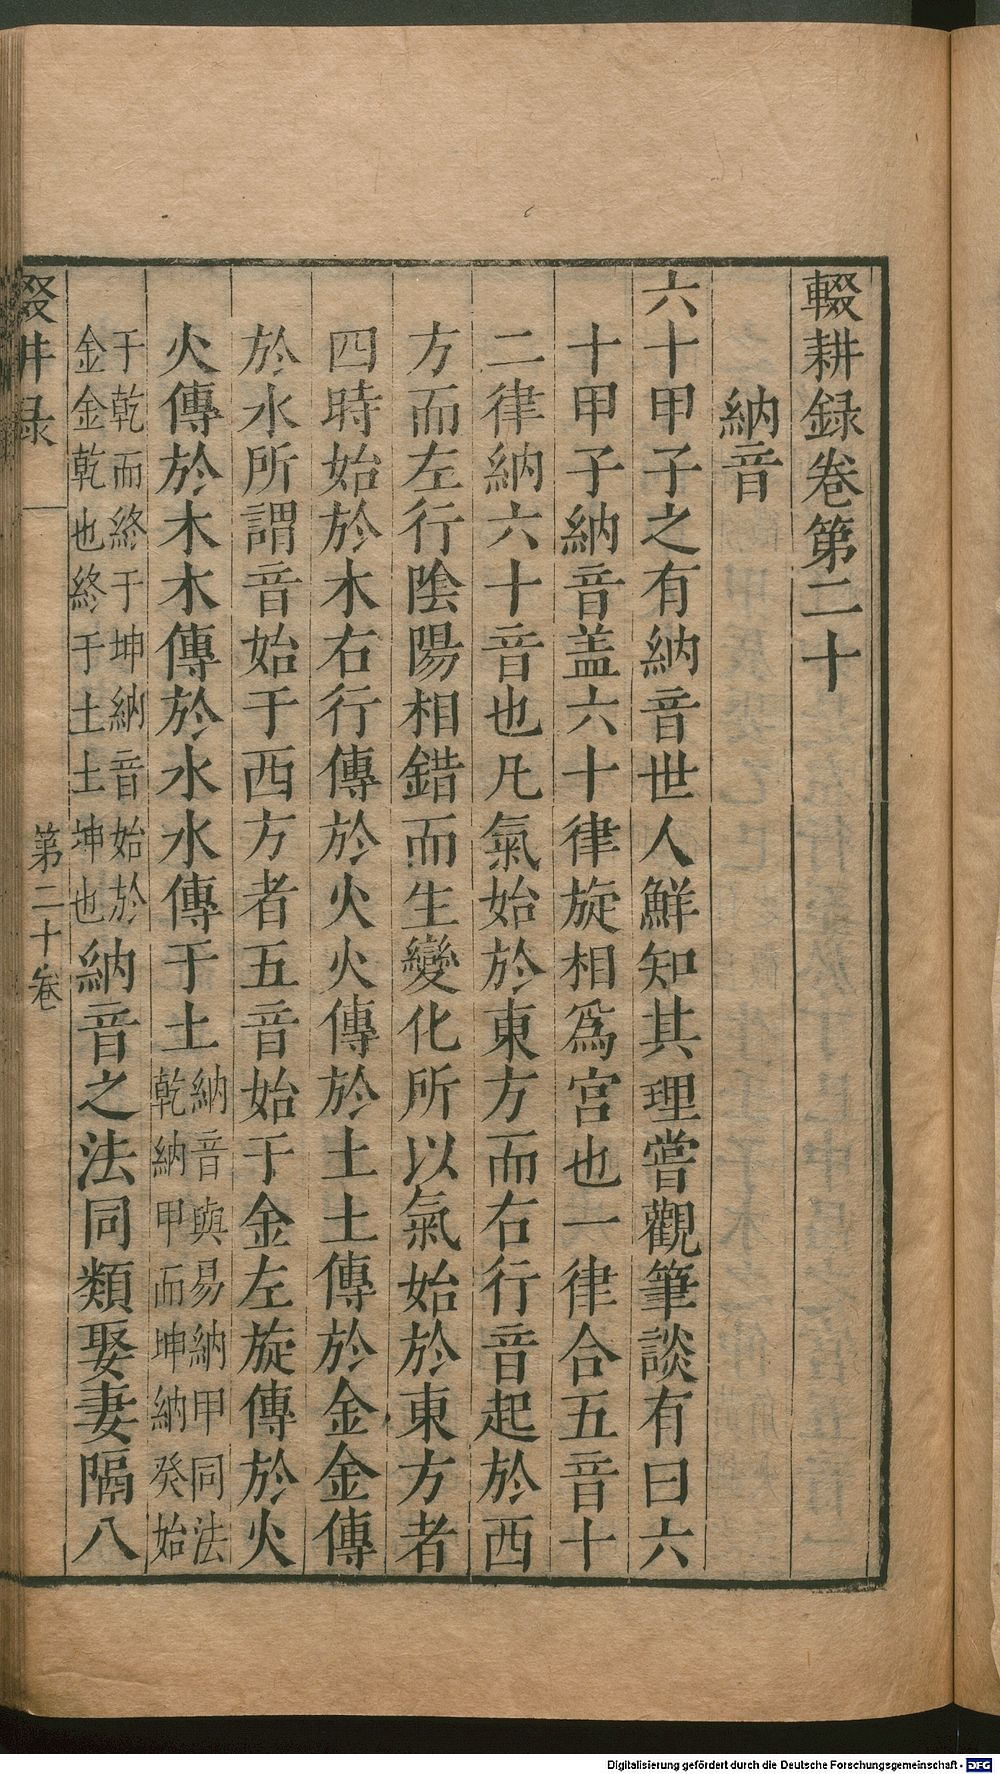 輟耕録卷第二十
納音
六十甲子之有納音世人鮮知其理嘗觀筆談有曰六
十甲子納音盖六十律旋相爲宮也一律合五音十
二律納六十音也凡氣始於東方而右行音起於西
方而左行陰陽相錯而生變化所以氣始於東方者
四時始於木右行傳於火火傳於土土傳於金金傳
於水所謂音始于西方者五音始于金左旋傳於火
火傳於木木傳於水水傳于土納音與易納甲同法
乾納甲而坤納癸始
于乾而終于坤納音始於
金金乾也終于土土坤也納音之法同類娶妻隔八
輟耕录
第二十卷
Digitalisierung gefördert durch die Deutsche Forschungsgemeinschaft - DFG